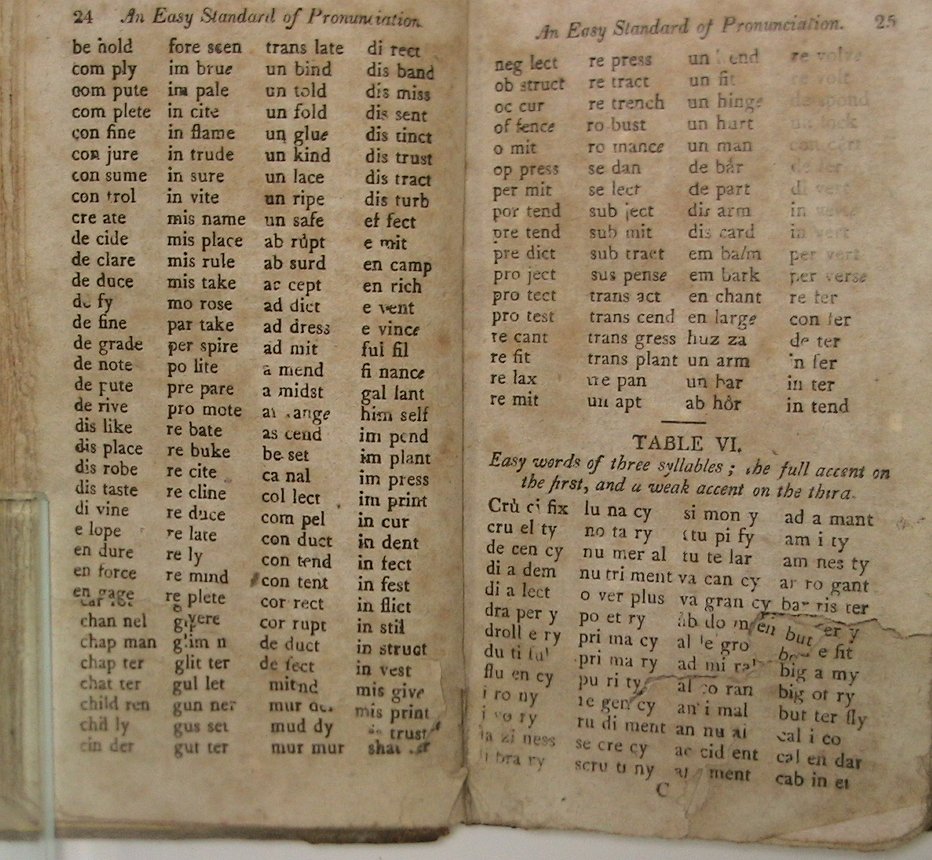 24 An Easy Standard of Pronunciation.
be hold fore seen trans late di rect
com ply im brue un bind dis band
com pute im pale un told dis miss
com plete in cite un fold dis sent
con fine in flame un glue dis tinct
con jure in trude un kind dis trust
con sume in sure un lace dis tract
con trol in vite un ripe dis turb
cre ate mis name un safe ef fect
de cide mis place ab rupt e mit
de clare mis rule ab surd en camp
de duce mis take ac cept en rich
de fy mo rose ad dict e vent
de fine par take ad dress e vince
de grade per spire ad mit ful fil
de note po lite a mend fi nance
de pute pre pare a midst gal lant
de rive pro mote ar range him self
dis like re bate as cend im pend
dis place re buke be set im plant
dis robe re cite ca nal im press
dis taste re cline col lect im print
di vine re duce com pel in cur
e lope re late con duct in dent
en dure re ly con tend in fect
en force re mind con tent in fest
en gage re plete cor rect in flict
chan nel cor rupt in stil
chap man de duct in struct
chap ter glit ter de fect in vest
chat ter gul let mis give
child ren gun ner mur mis print
chil ly gus set mud dy trust
cin der gut ter mur mur
An Easy Standard of Pronunciation. 25
neg lect re press un re volve
ob struct re tract un fit re volt
oc cur re trench un hinge de spond
of fence ro bust un hurt
o mit ro mance un man con cert
op press se dan de bár
per mit se lect de part di vert
por tend sub ject dis arm in verse
pre tend sub mit dis card in vert
pre dict sub tract em balm per vert
pro ject sus pense em bark per verse
pro tect trans act en chant re fer
pro test trans cend en large con fer
re cant trans gress huz za de ter
re fit trans plant un arm in fer
re lax tre pan un bar in ter
re mit un apt ab hôr in tend
TABLE VI.
Easy words of three syllables; the full accent on
the first, and a weak accent on the third.
Crù ci fix lu na cy si mon y ad a mant
cru el ty no ta ry stu pi fy am i ty
de cen cy nu mer al tu te lar am nes ty
di a dem nu tri ment va can cy ar ro gant
di a lect o ver plus va gran cy bar ris ter
dra per y po et ry ab do men but er y
droll e ry pri ma cy al le gro be e fit
du ti ful pri ma ry ad mi ral big a my
flu en cy pu ri ty al co ran big ot ry
i ro ny re gen cy an i mal but ter fly
i vo ry ru di ment an nu al cal i co
la zi ness se cre cy ac cid ent cal en dar
li bra ry scru ti ny ment cab in et
C